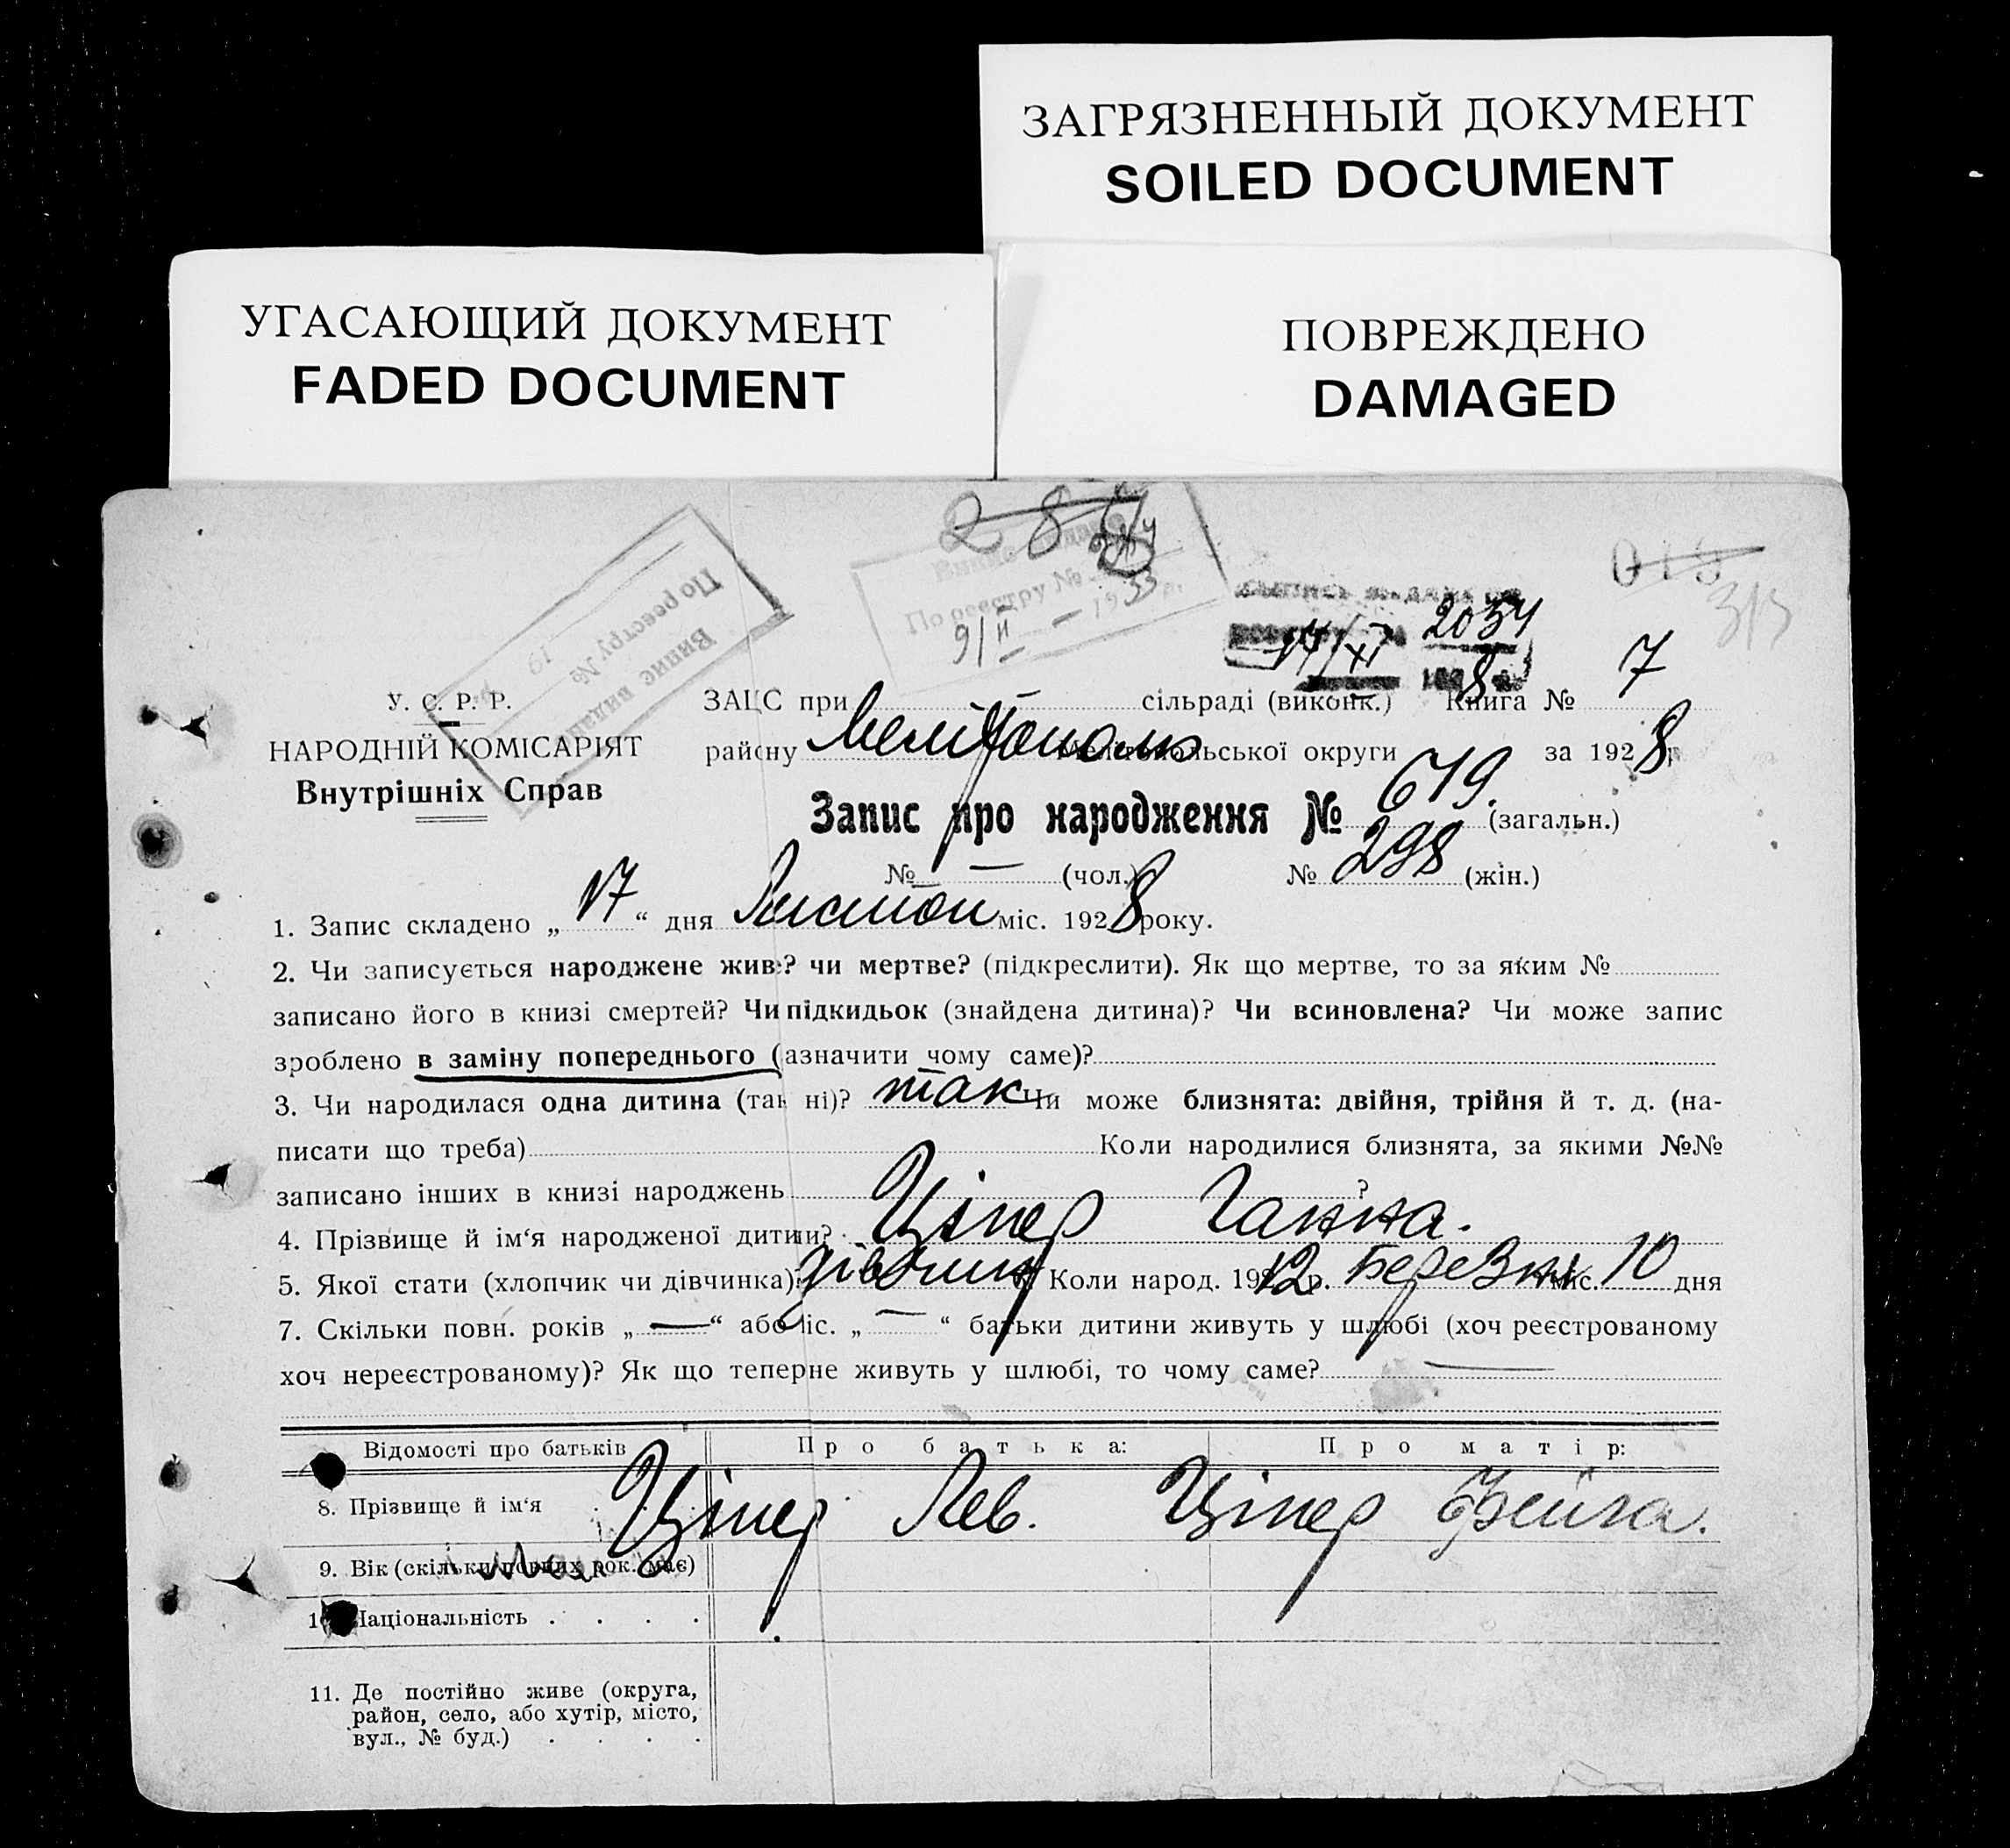 ЗАГРЯЗНЕННЫЙ ДОКУМЕНТ
SOILED DOCUMENT
УГАСАЮЩИЙ ДОКУМЕНТ
FADED DOCUMENT
ПОВРЕЖДЕНО
DAMAGED
По реєстру №
Випис видано
19
По реєстру №
9/II — 1933 р.
2034
14/XI 8
313
У. С. Р. Р.
НАРОДНІЙ КОМІСАРІЯТ
Внутрішніх Справ
ЗАЦС при сільраді (виконк.) Книга № 7
району Мелітополь Мелітопольської округи за 1928 р
Запис про народження № 679. (загальн.)
№ — (чол.) № 298 (жін.)
1. Запис складено „ 17 “ дня Листоп міс. 1928 року.
2. Чи записується народжене живе? чи мертве? (підкреслити). Як що мертве, то за яким №
записано його в книзі смертей? Чи підкидьок (знайдена дитина)? Чи всиновлена? Чи може запис
зроблено в заміну попереднього (азначити чому саме)?
3. Чи народилася одна дитина (так ні)? так Чи може близнята: двійня, трійня й т. д. (на-
писати що треба) Коли народилися близнята, за якими №№
записано інших в книзі народжень ?
4. Прізвище й ім‘я народженої дитини? Ціпер Ганна.
5. Якої стати (хлопчик чи дівчинка)? дівчин Коли народ. 1912 р. Березня міс. 10 дня
7. Скільки повн. років „ — “ або міс. „ — “ батьки дитини живуть у шлюбі (хоч реєстрованому
хоч нереєстрованому)? Як що тепер не живуть у шлюбі, то чому саме? —
Відомості про батьків Про батька: Про матір:
8. Прізвище й ім‘я Ціпер Лев. Ціпер Фейга.
9. Вік (скільки повних рок. має)
10. Національність
11. Де постійно живе (округа,
район, село, або хутір, місто,
вул., № буд.)